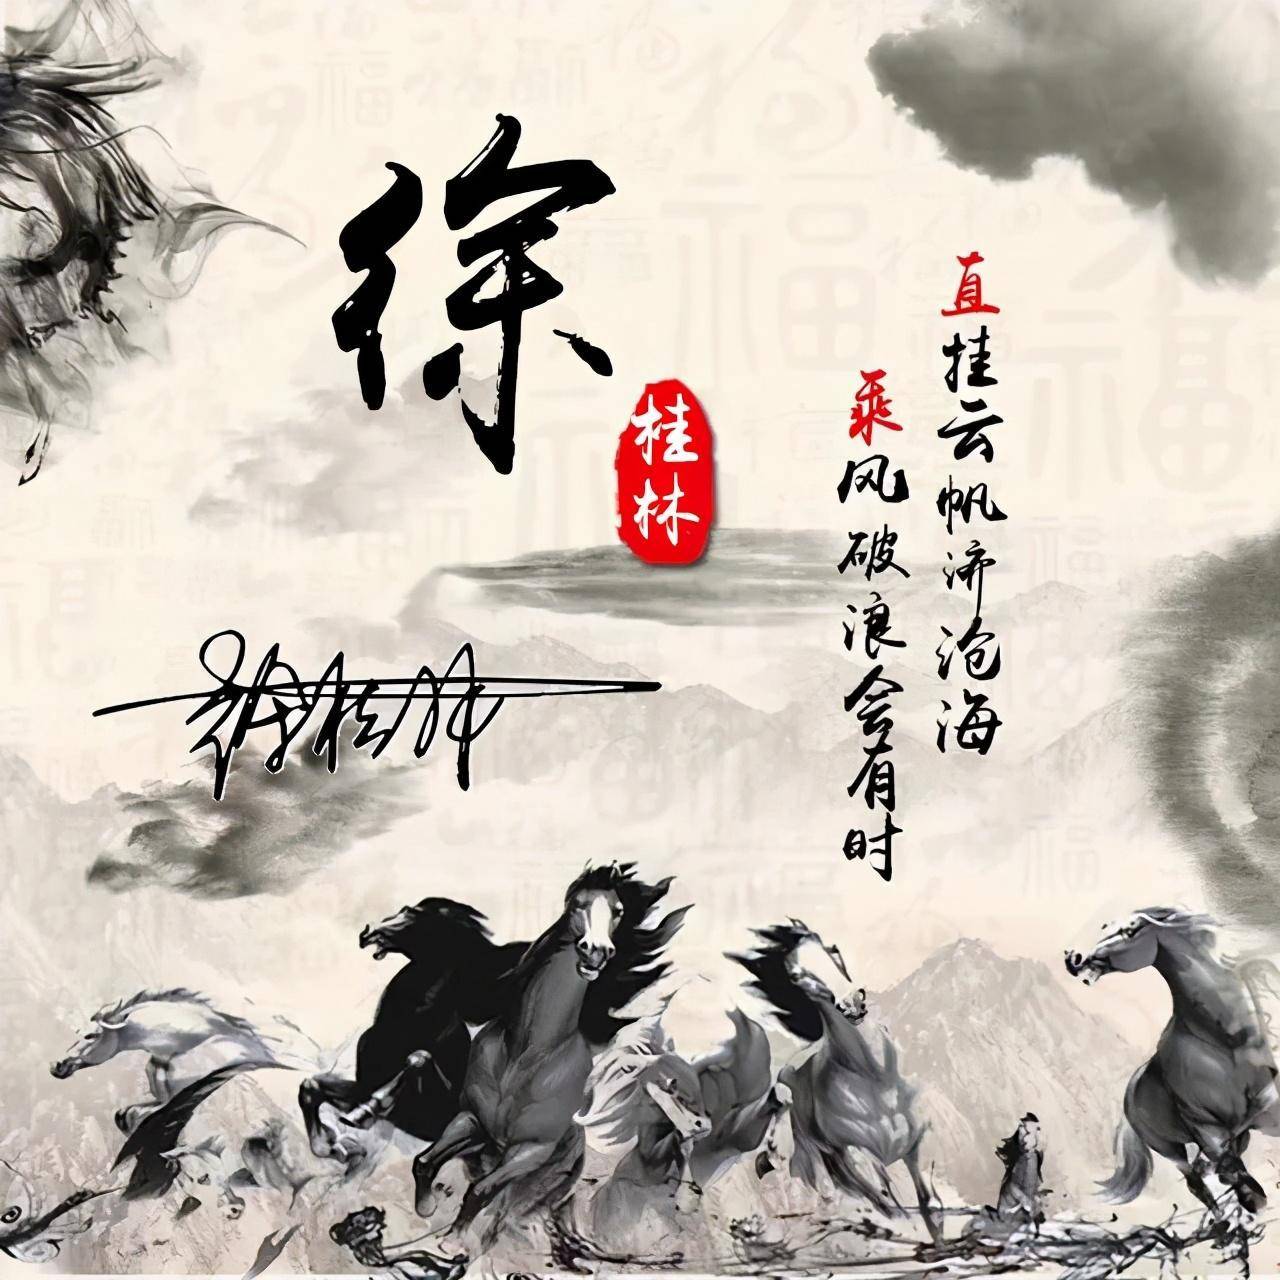 徐
桂林
徐桂林
乘风破浪会有时
直挂云帆济沧海